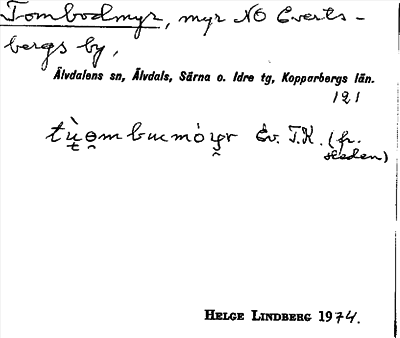 Tombodmyr, myr NO Everts-
bergs by,
Älvdalens sn, Älvdals, Särna o. Idre tg, Kopparbergs län.
121
Ev. T.K. (fr.
HELGE LINDBERG 1974.